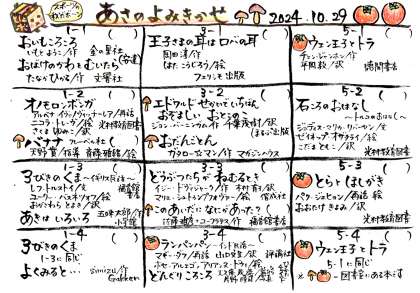 スポーツの秋バージョン
あさのよみきかせ
2024.10.29
1-1 ( )
おいもころころ
いもとようこ/作 金の星社
おばけのやだもん
ひらのゆきこ/作
3-1 ( )
王子さまの耳はロバの耳
岡田淳/作
はたこうしろう/絵
フェリシモ出版
5-1 ( )
ウェン王子とトラ
チェン・ジャンホン/作
平岡敦/訳 徳間書店
1-2 ( )
オノモロンボンガ
アルベナ・イヴァノヴィッチ=レア/再話
ニコラ・トレーヴ/絵
さくまゆみこ/訳 光村教育図書
バナナ フレーベル社
天野實/指導 斉藤雅緒/絵
3-2 ( )
エドワルド せかいでいちばん
おぞましい おとこのこ
ジョン・バーニンガム/作 千葉茂樹/訳
ほるぷ出版
おだんごとん
ガタロー☆マン/作 マガジンハウス
5-2 ( )
石ころのおはなし
〜トルコのおはなし〜
光村教育図書
1-3 ( )
3びきのくま 〜イギリス民話〜
レフ・トルストイ/文 福音館書店
ユーリー・バスネツォフ/絵
おがさわらとよき/訳
あきは いろいろ 五味太郎/作
小学館
3-3 ( )
どうぶつたちがねむるとき
イジー・ドヴォジャーク/作 木村有子/訳
マリエ・シュトゥンプフォヴァー/絵 偕成社
このあいだになにがあった?
佐藤雅彦・ユーフラテス/作 福音館書店
5-3 ( )
とらとほしがき
パク・ジェヒョン/再話・絵
おおたけきよみ/訳
光村教育図書
1-4 ( )
3びきのくま
1-3に同じ
よくみると… shimizu/作
Gakken
3-4 ( )
ランパンパン 〜インド民話〜
マギー・ダフ/再話 山口文生/訳 評論社
ホセ・アルエゴ、アリアンヌ・ドウィ/絵
どんぐりころころ
5-4 ( )
ウェン王子とトラ
5-1に同じ
※ … 図書室にある本です